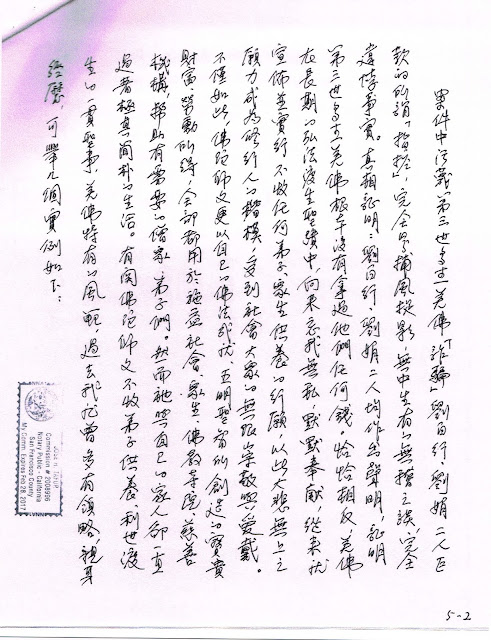 案件中污蔑「第三世多杰羌佛詐騙」劉百行、劉娟二人巨
款的所謂「指控」,完全是捕風捉影、無中生有的無稽之談,完全
違悖事實。真相証明:劉百行、劉娟二人均作出聲明,証明
第三世多杰羌佛根本沒有拿過他們任何錢。恰恰相反,羌佛
在長期的弘法渡生聖蹟中,向來忘我無私,默默奉獻,從來就
宣佈並實行不收任何弟子、眾生供養的行願,以此大悲無上之
願力成為修行人的楷模,受到社會大眾的無限崇敬與愛戴。
不僅如此,佛陀師父更以自己的佛法成就、五明聖智所創造的寶貴
財富、勞動所得,全部都用於施益社會、眾生、佛教寺院、慈善
機構,幫助有需要的僧眾、弟子們。然而祂與自己的家人卻一直
過着極其簡朴的生活。有関佛陀師父不收弟子供養、利世渡
生的一貫聖事,羌佛特有的風範,過去我已曾多有領略,親身
經歷,可舉几個實例如下:
Commission # 2008996
Notary Public - California
San Francisco County
My Comm. Expires Feb 28, 2017
5-2